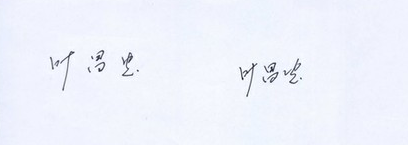 叶昌忠 叶昌忠